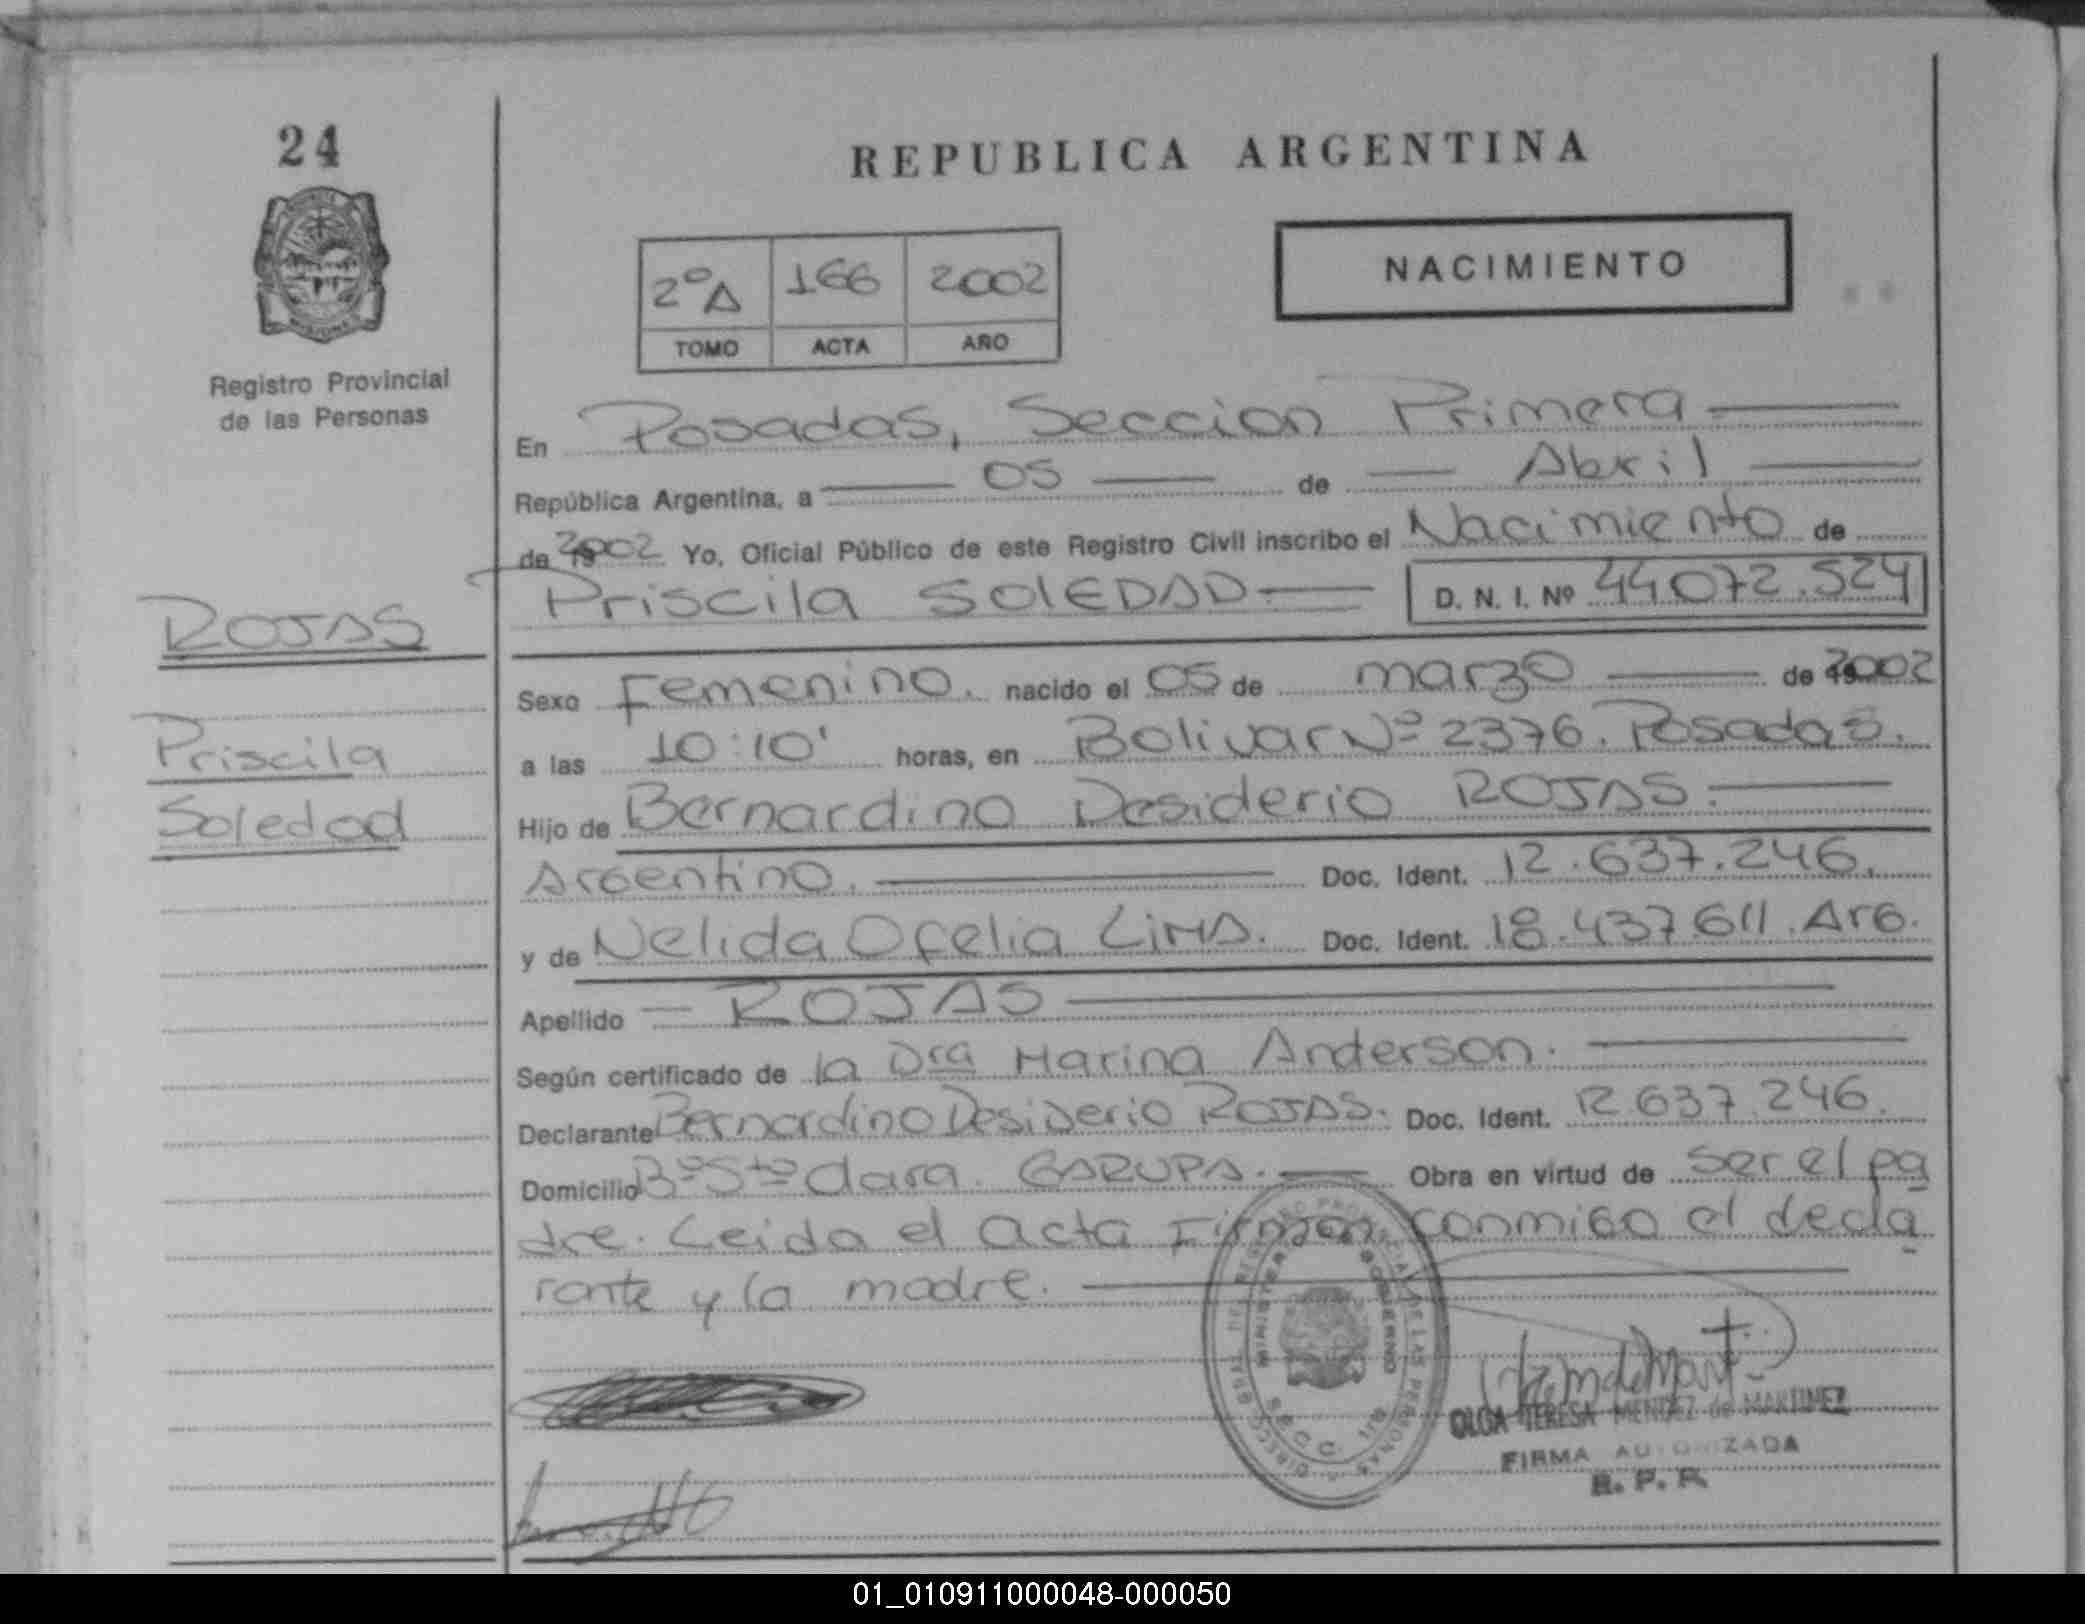 24
REPUBLICA ARGENTINA
NACIMIENTO
2º A 166 2002
TOMO ACTA AÑO
MISIONES
Registro Provincial
de las Personas
En Posadas, Seccion Primera
República Argentina, a 05 de Abril
de 2002 Yo, Oficial Público de este Registro Civil inscribo el Nacimiento de
Priscila SOlEDAD D. N. I. Nº 44072.524
ROJAS
Priscila
Soledad
Sexo Femenino. nacido el 05 de marzo de 2002
a las 10:10' horas, en Bolivar Nº 2376. Posadas.
Hijo de Bernardino Desiderio ROJAS.
Argentino. Doc. Ident. 12.637.246.
y de Nelida Ofelia LiMA. Doc. Ident. 18.437611. Arg.
Apellido ROJAS
Según certificado de la Dra Marina Anderson.
Declarante Bernardino Desiderio ROJAS. Doc. Ident. 12.637.246.
Domicilio Bº Sta Clara. GARUPA. Obra en virtud de ser el pa
dre. Leida el acta Firman conmigo el decla
rante y la madre.
DIRECC. GRAL. DEL REGISTRO PROVINCIAL DE LAS PERSONAS
GOBIERNO
SECC.
OLGA TERESA MENDEZ de MARTINEZ
FIRMA AUTORIZADA
R. P. P.
01_010911000048-000050